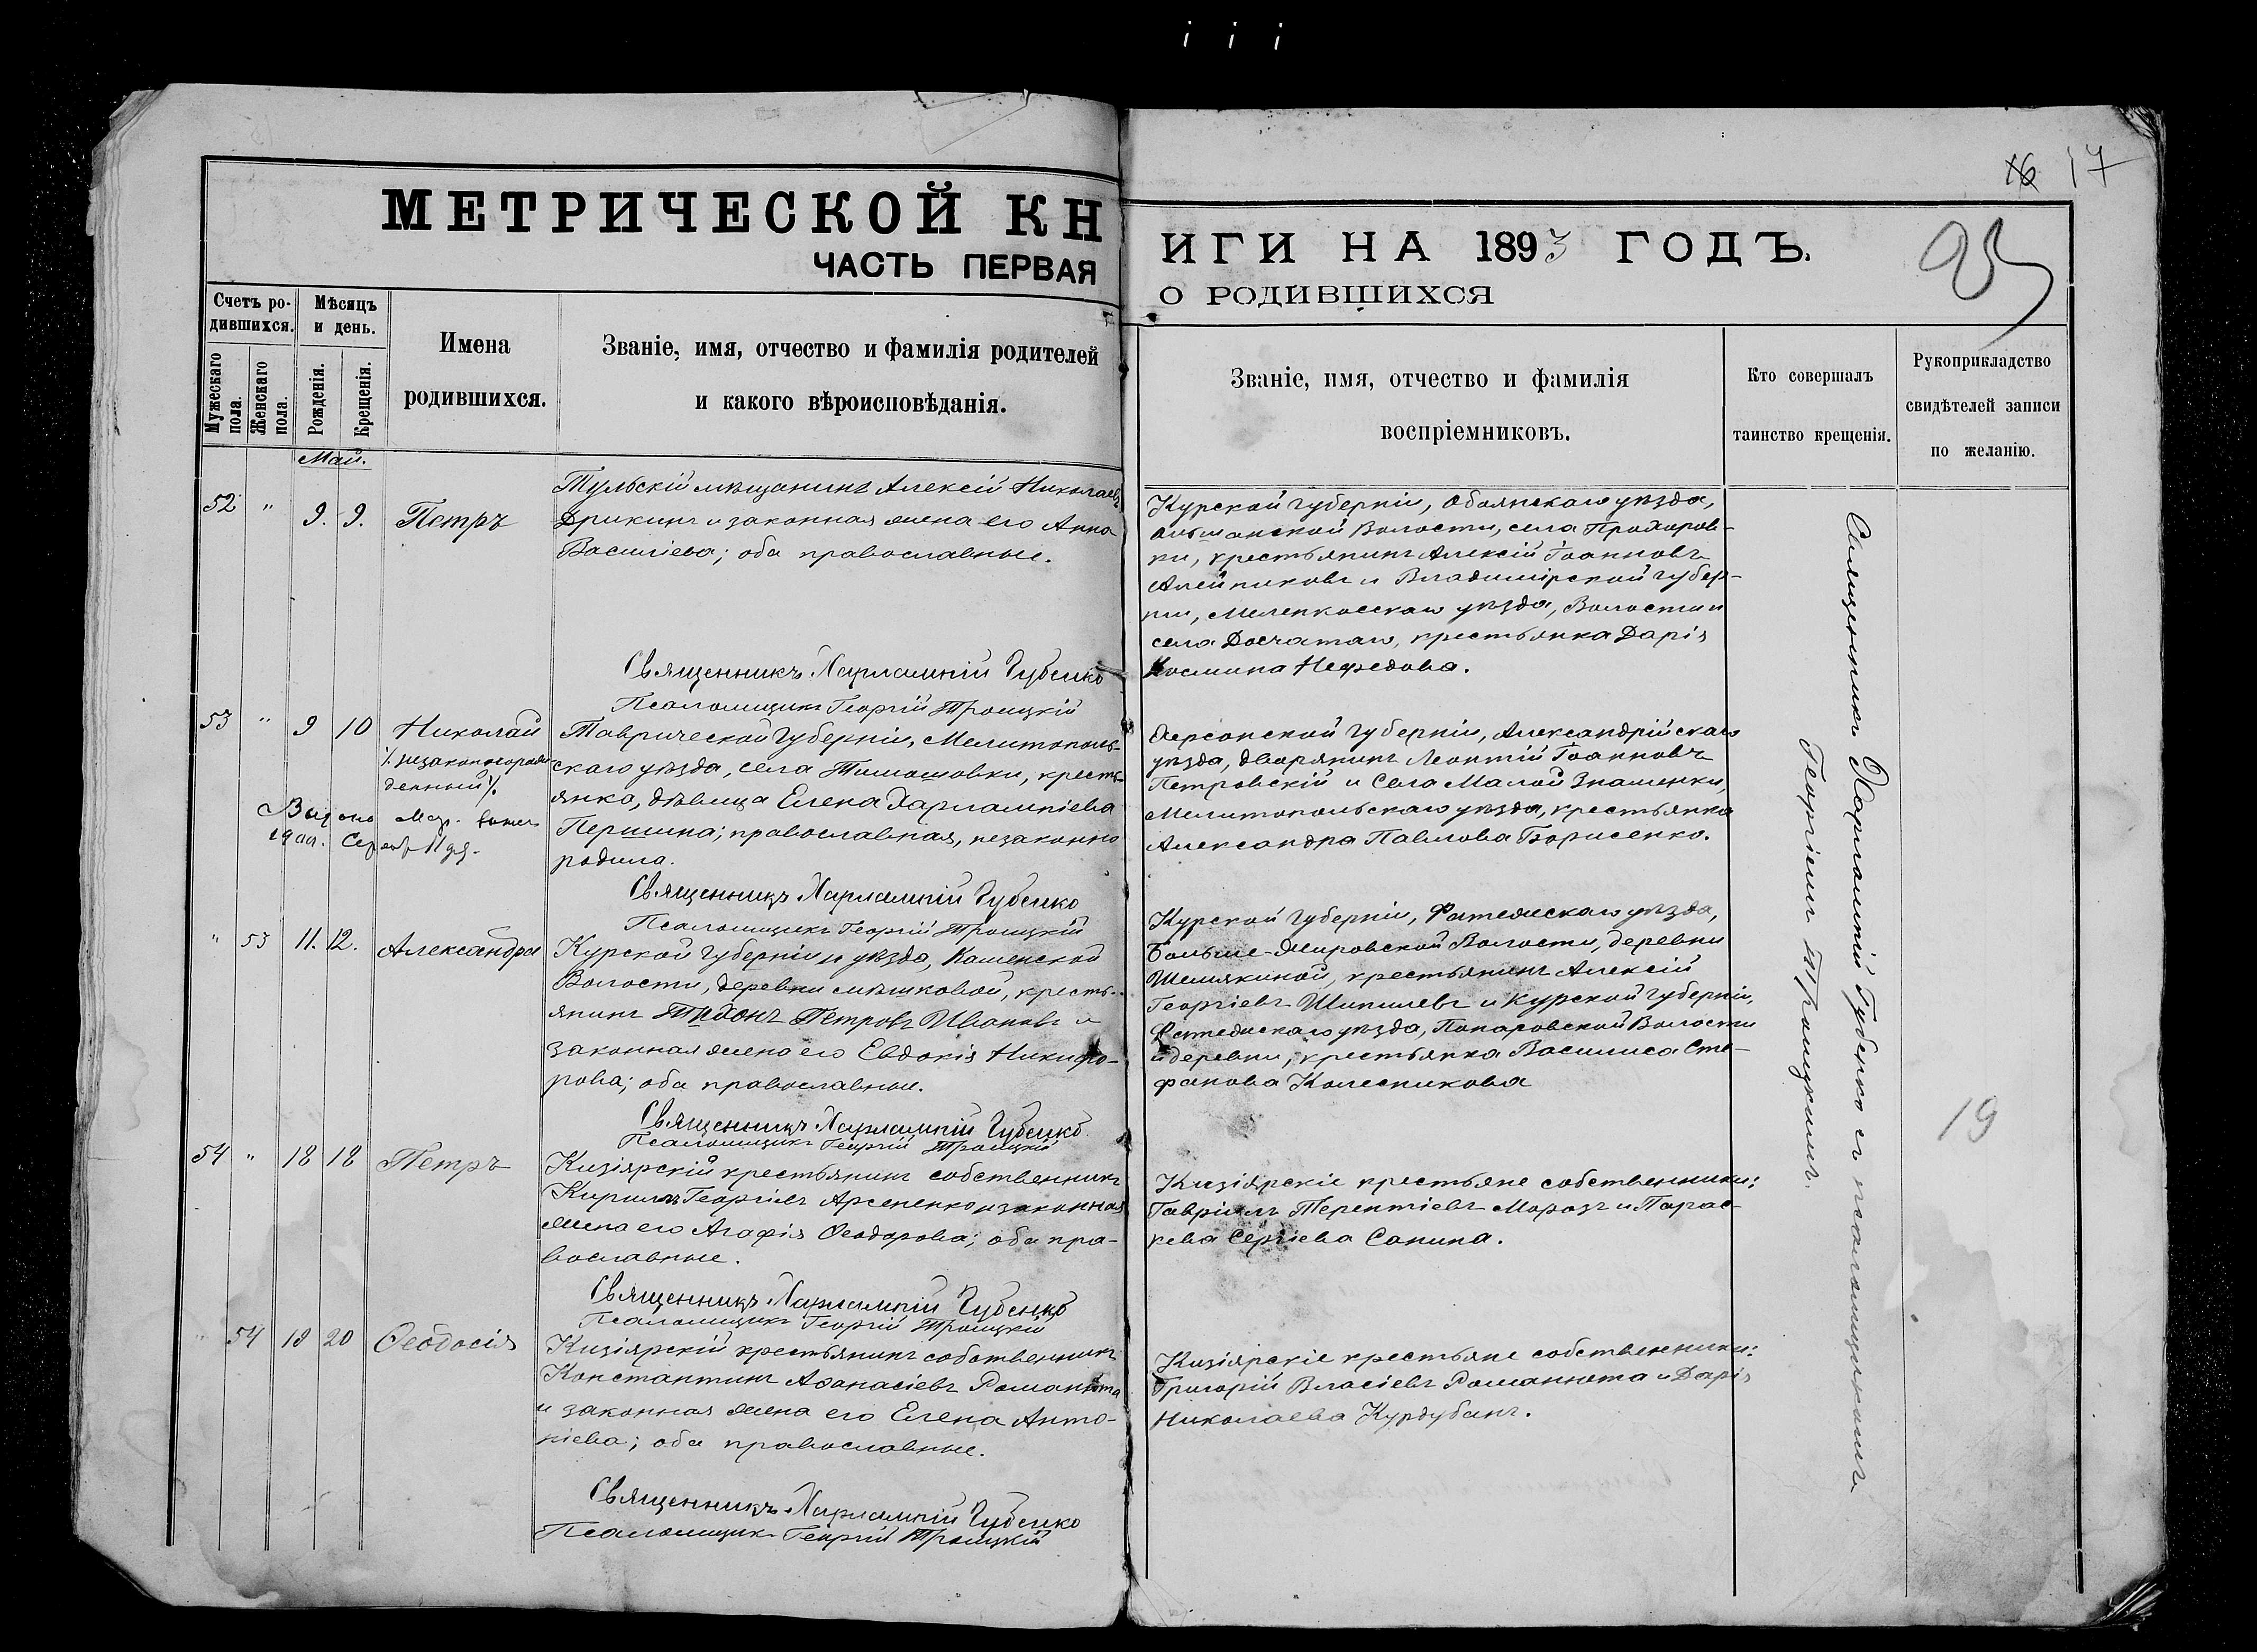 16 17
МЕТРИЧЕСКОЙ КНИГИ НА 1893 ГОДЪ.
ЧАСТЬ ПЕРВАЯ О РОДИВШИХСЯ
Счетъ ро-
дившихся.
Мужескаго пола.
Женскаго пола.
Мѣсяцъ
и день.
Рожденія.
Крещенія.
Имена
родившихся.
Званіе, имя, отчество и фамилія родителей
и какого вѣроисповѣданія.
Званіе, имя, отчество и фамилія
воспріемниковъ.
Кто совершалъ
таинство крещенія.
Рукоприкладство
свидѣтелей записи
по желанію.
Май.
52 " 9. 9. Петръ
Тульскій мѣщанинъ Алексій Николаевъ
Дрикинъ и законная жена его Анна
Василіева; оба православные.
Священникъ Харлампій Губенко
Псаломщикъ Георгій Троицкій
Курской губерніи, Обоянскаго уѣзда,
Ольшанской Волости, села Прохоров-
ки, крестьянинъ Алексій Іоанновъ
Алейниковъ и Владимірской губер-
ніи, Меленковскаго уѣзда, Волости и
села Досчатаго, крестьянка Дарія
Косьмина Нефедова.
53 " 9 10 Николай
/незаконнорож-
денный/.
19 Сентяб 11
Таврической губерніи, Мелитополь-
скаго уѣзда, села Тимошовки, кресть-
янка, дѣвица Елена Харлампіева
Першина; православная, незаконно
родила.
Священникъ Харлампій Губенко
Псаломщикъ Георгій Троицкій
Херсонской губерніи, Александрійскаго
уѣзда, дворянинъ Леонтій Іоанновъ
Петровскій и Села Малой Знаменки,
Мелитопольскаго уѣзда, крестьянка
Александра Павлова Борисенко.
" 53 11. 12. Александра
Курской губерніи и уѣзда, Каменской
Волости, деревни Мѣшковой, кресть-
янинъ Тихонъ Петровъ Ивановъ и
законная жена его Евдокія Никифо-
рова; оба православные.
Священникъ Харлампій Губенко
Псаломщикъ Георгій Троицкій
Курской губерніи, Фатежскаго уѣзда,
Больше-Жировской Волости, деревни
Шемякиной, крестьянинъ Алексій
Георгіевъ Шипилевъ и Курской губерніи,
Фатежскаго уѣзда, Волости
и деревни, крестьянка Василиса Сте-
фанова Колесникова
54 " 18 18 Петръ
Кизіярскій крестьянинъ собственникъ
Кириллъ Георгіевъ Арсененко и законная
жена его Агафія Ѳеодорова; оба пра-
вославные.
Священникъ Харлампій Губенко
Псаломщикъ Георгій Троицкій
Кизіярскіе крестьяне собственники:
Гавріилъ Терентіевъ Морозъ и Парас-
кева Сергіева Санина.
" 54 18 20 Ѳеодосія
Кизіярскій крестьянинъ собственникъ
Константинъ Аѳанасіевъ Романюта
и законная жена его Елена Анто-
ніева; оба православные.
Священникъ Харлампій Губенко
Псаломщикъ Георгій Троицкій
Кизіярскіе крестьяне собственники:
Григорій Власіевъ Романюта и Дарія
Николаева Курдубанъ.
Священникъ Харлампій Губенко съ псаломщикомъ
Георгіемъ Троицкимъ.
19